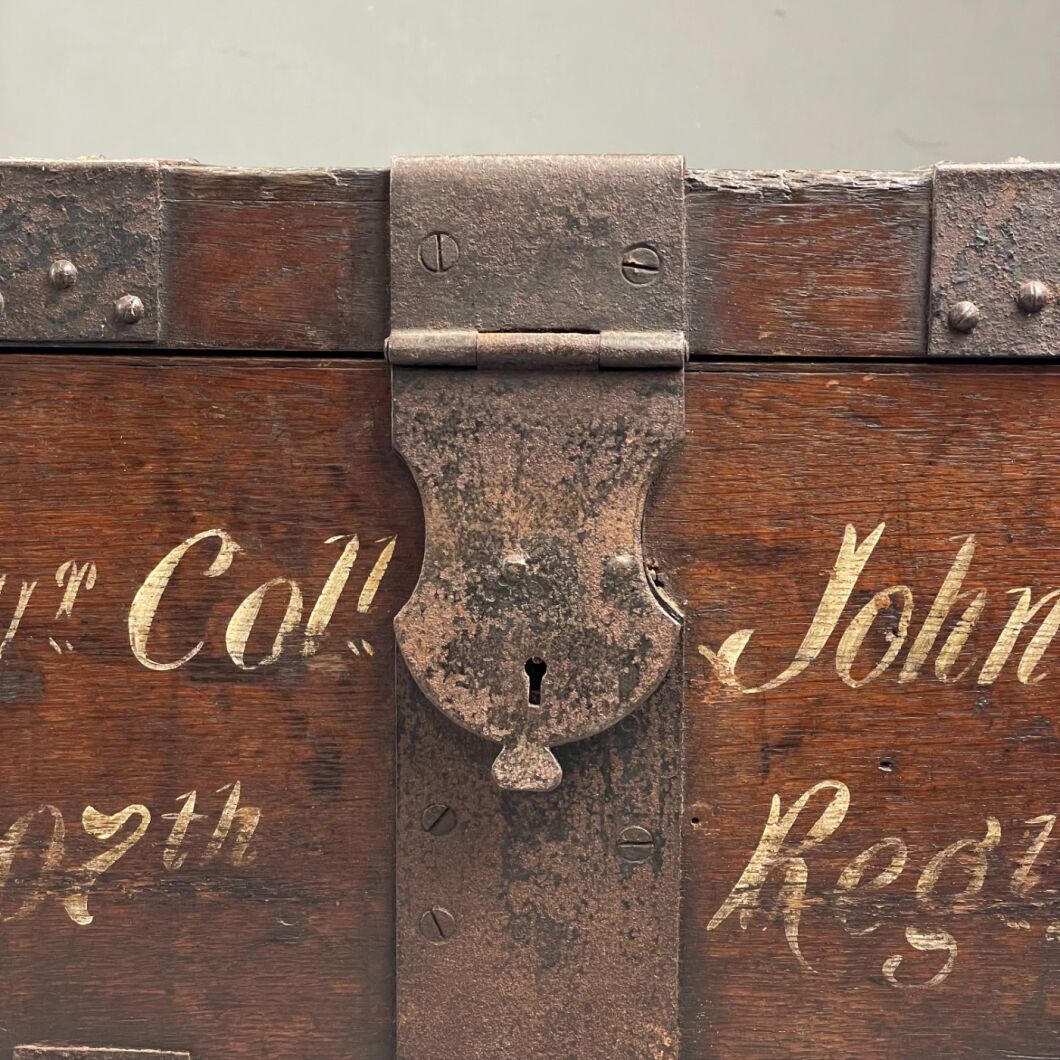 Coll John
7th Regt